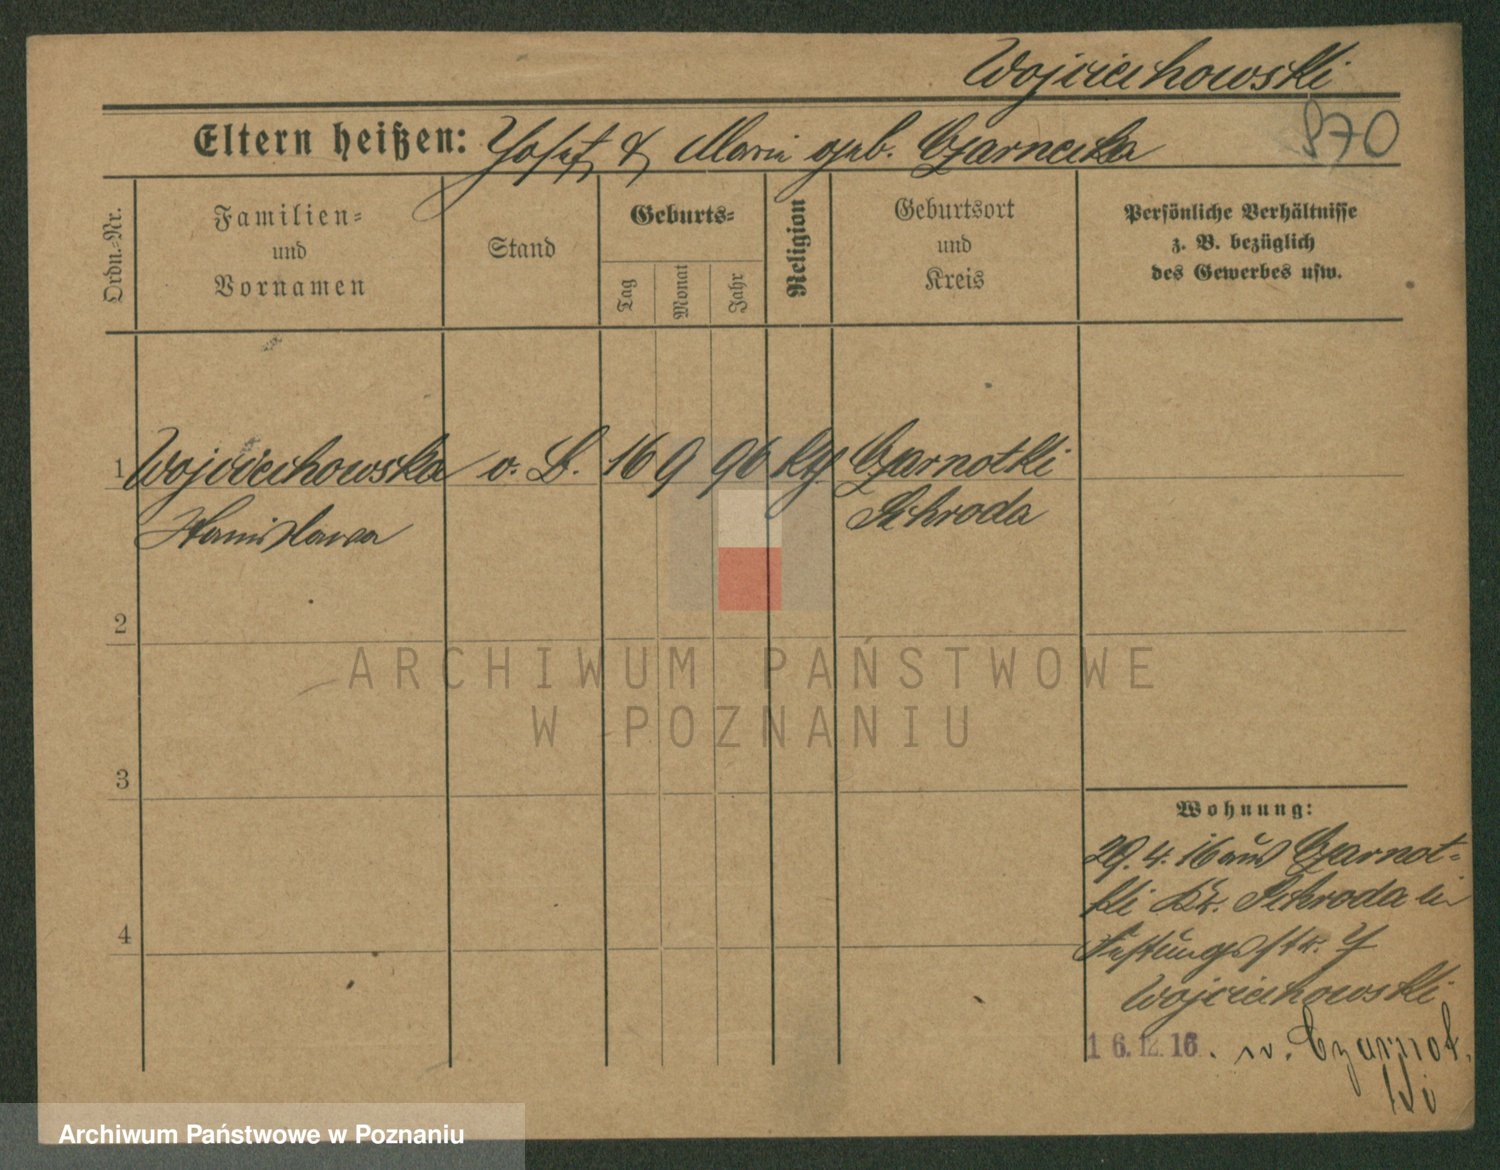 Wojciechowski
Eltern heißen: Josef & Maria geb. Czarnecka
970
Ordn.-Nr.
Familien-
und
Vornamen
Stand
Geburts-
Tag
Monat
Jahr
Religion
Geburtsort
und
Kreis
Persönliche Verhältnisse
z. B. bezüglich
des Gewerbes usw.
1 Wojciechowska o. B. 16 9 96 kth Czarnotki
Stanislawa Schroda
2
3
4
Wohnung:
29.4.16 aus Czarnot-
ki Kr. Schroda in
Festungsstr. 7
Wojciechowski
16.12.16. n. Czarnot
ki
ARCHIWUM PAŃSTWOWE
W POZNANIU
Archiwum Państwowe w Poznaniu